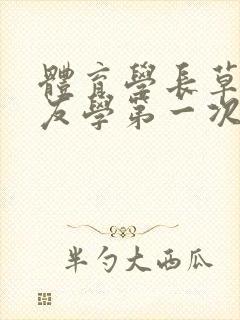 體育學長草
友學第一次
半勺大西瓜